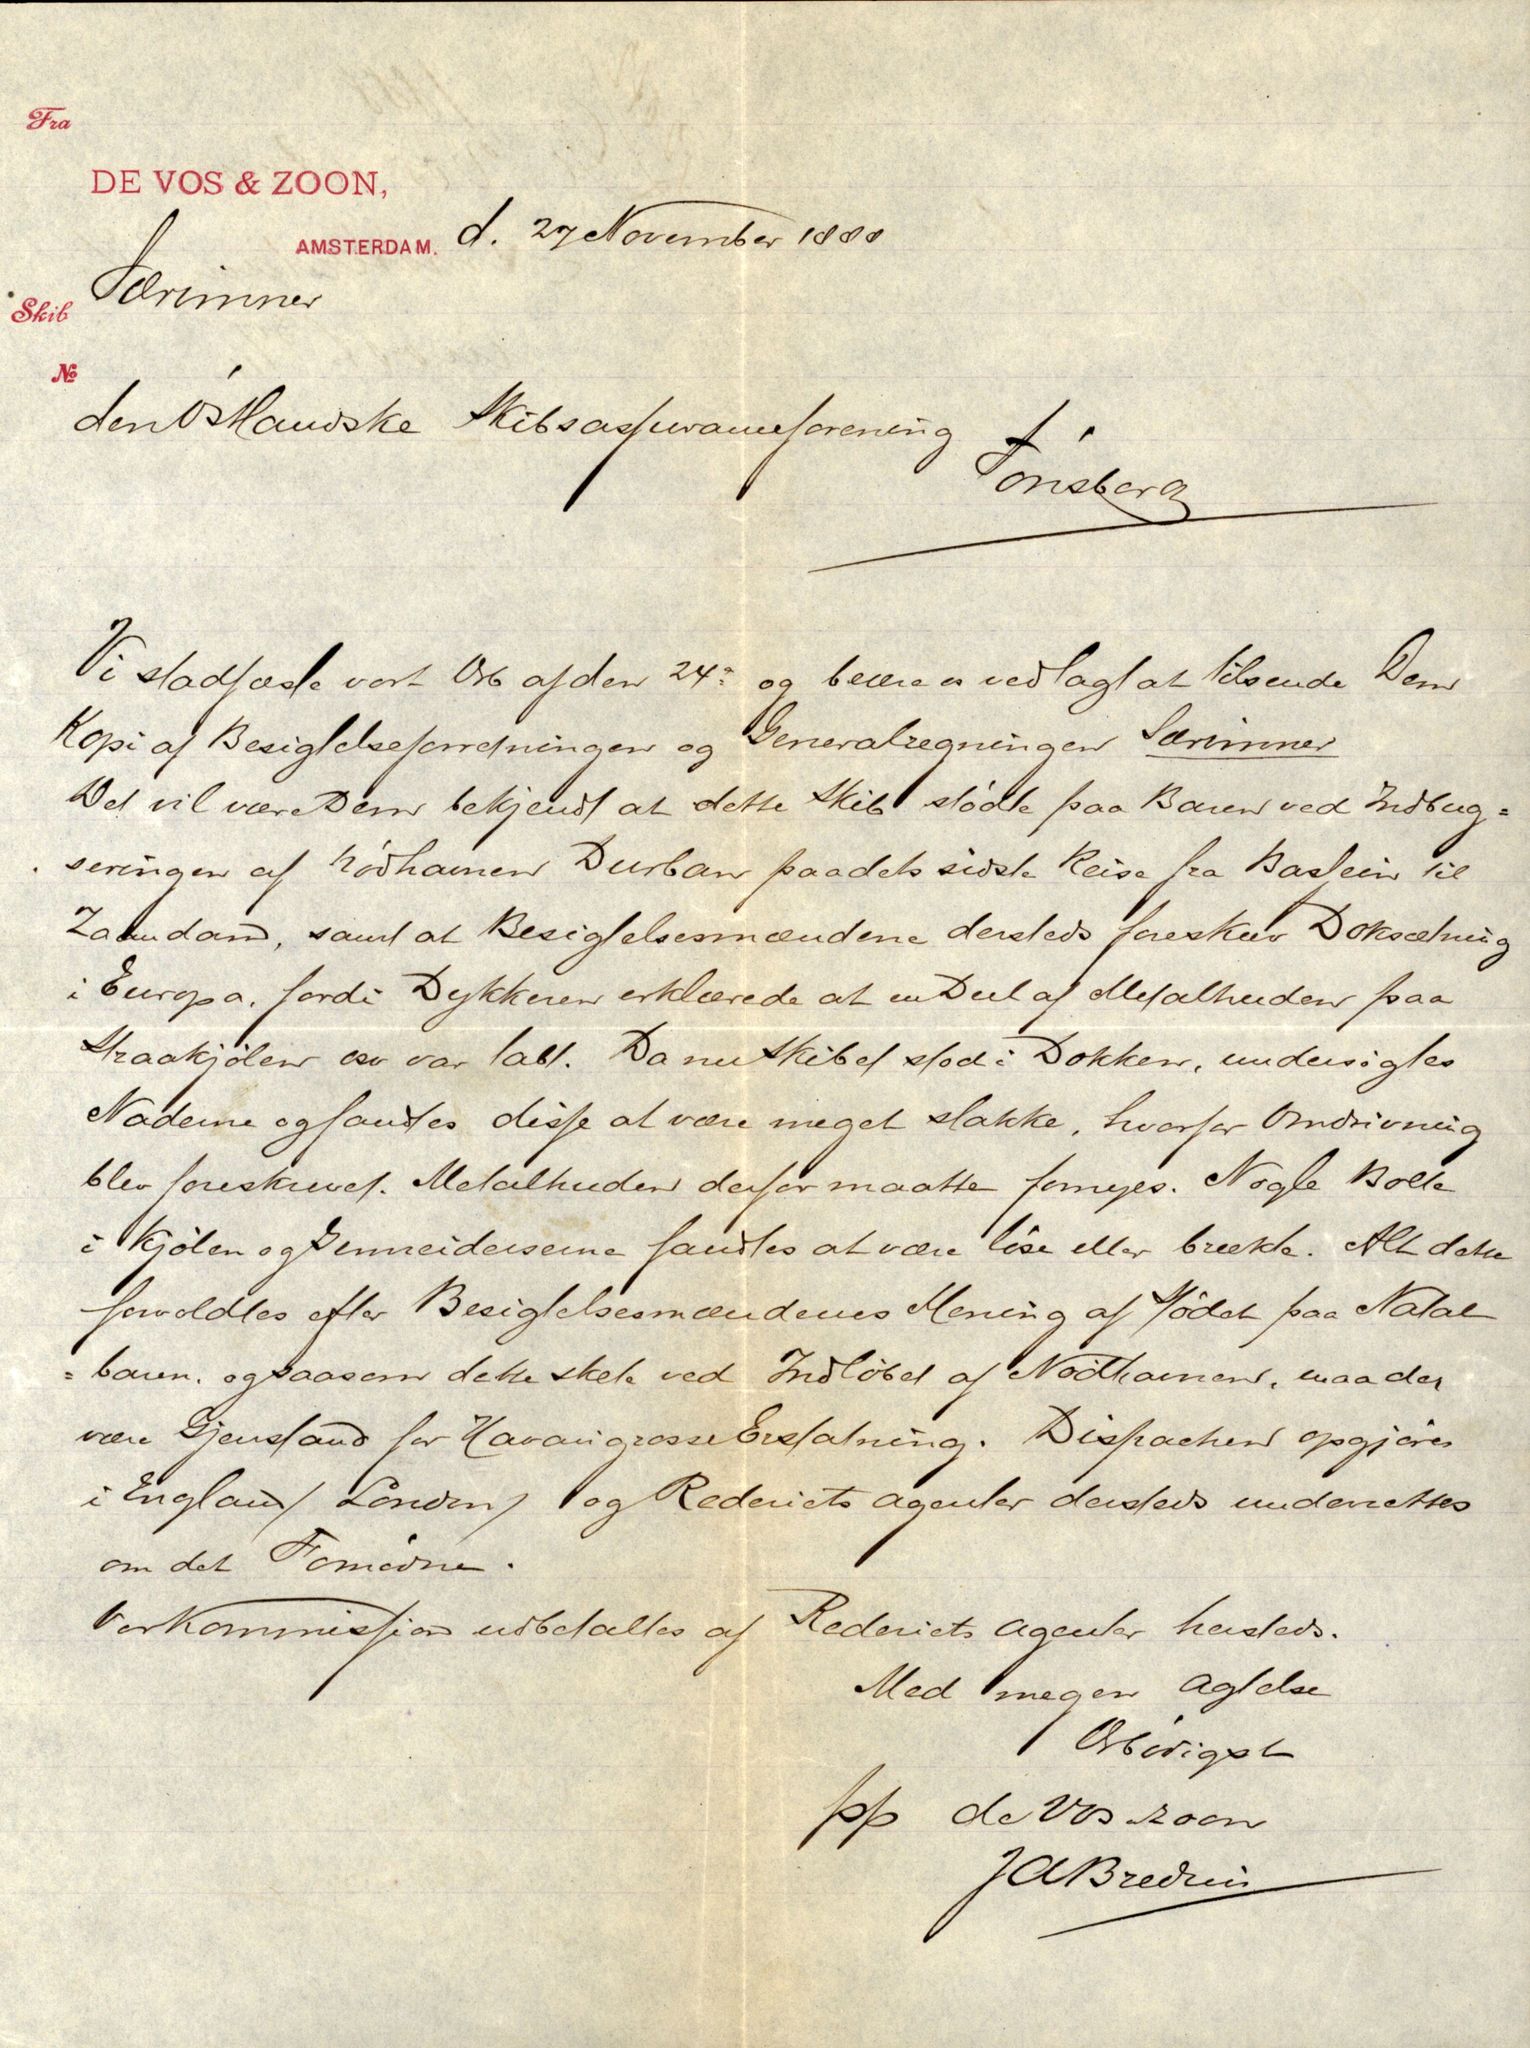 Fra
DE VOS & ZOON,
AMSTERDAM. d. 27 November 1888
Skib Særimner
No
den Østlandske Skibsassuranceforening
Tönsberg
Vi stadfæste vort Æb af den 24: og beære os vedlagt at tilsende Dem
Kopi af Besigtelsesforretningen og Generalregningen Særimner
Det vil være Dem bekjendt at dette Skib stødte paa Baren ved Indbug=
seringen af Nödhavnen Durban paa dets sidste Reise fra Bassein til
Zaandam, samt at Besigtelsesmændene dersteds foreskrev Doksætning
i Europa, fordi Dykkeren erklærede at en Deel af Metalhuden paa
Straakjölen osv var tabt. Da nu Skibet stod i Dokken, undersigtes
Naderne og fandtes disse at være meget slakke, hvorfor Omdrivning
blev foreskrevet. Metalhuden derfor maatte fornyes. Nogle Bolte
i Kjölen og fandtes at være löse eller brækte. Alt dette
forvoldtes efter Besigtelsesmændenes Mening af Stödet paa Natal
=baren, og saasom dette skete ved Indløbet af Nödhavnen, maa der
være Gjenstand for Havarigrosse Erstatning. Dispachen opgjöres
i England / London / og Rederiets agenter dersteds underrettes
om det Fornödne.
Vor Kommission udbetaltes af Rederiets Agenter hersteds.
Med megen Agtelse
Ærbödigst
pp de Vos & Zoon
J A